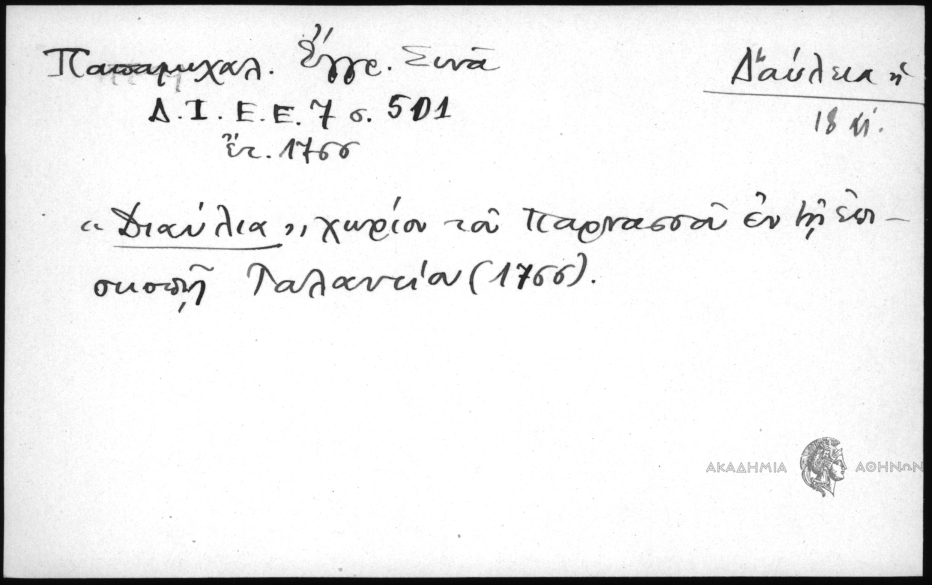 Παπαμιχαλ. Ἔγγρ. Σινᾶ
Δαύλεια ἡ
Δ.Ι.Ε.Ε. 7 σ. 501
18 αἰ.
ἔτ. 1766
« Διαύλια », χωρίον τοῦ Παρνασσοῦ ἐν τῇ ἐπι-
σκοπῇ Ταλαντίου (1766).
ΑΚΑΔΗΜΙΑ ΑΘΗΝΩΝ